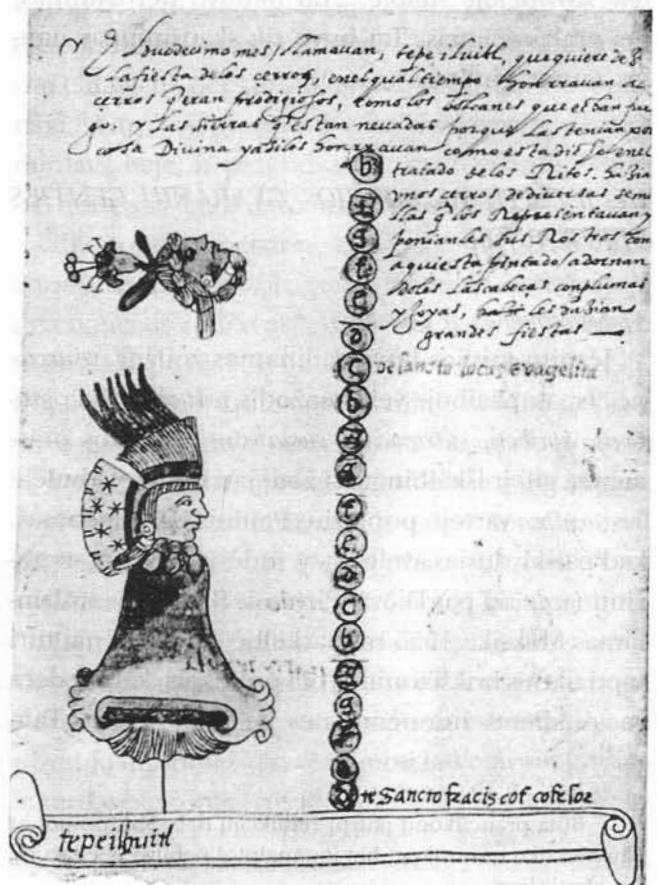 Al duodecimo mes, llamauan, tepeilhuitl, que quiere dez.
La fiesta delos cerros, enel qual tiempo honrrauan
cerros q̃ eran prodigiosos, como los bolcanes que echan fue
go, y Las sierras q̃ estan neuadas porque Las tenian por
cosa Diuina ya si los honrrauan como esta dicho enel
b
tratado delos Ritos. hazian
A
vnos cerros de diuersas semi
g
llas q̃ los Representauan y
f
ponianles sus Rostros como
aqui esta pintado, adornan
e
doles las cabeças con plumas
y joyas, hazianles
d
grandes fiestas
c de sancto lucas Evagelista
b
A
g
f
e
d
c
b
A
g
f
e
d ñ Sancto fracis cof cofesor
tepeilhuitl